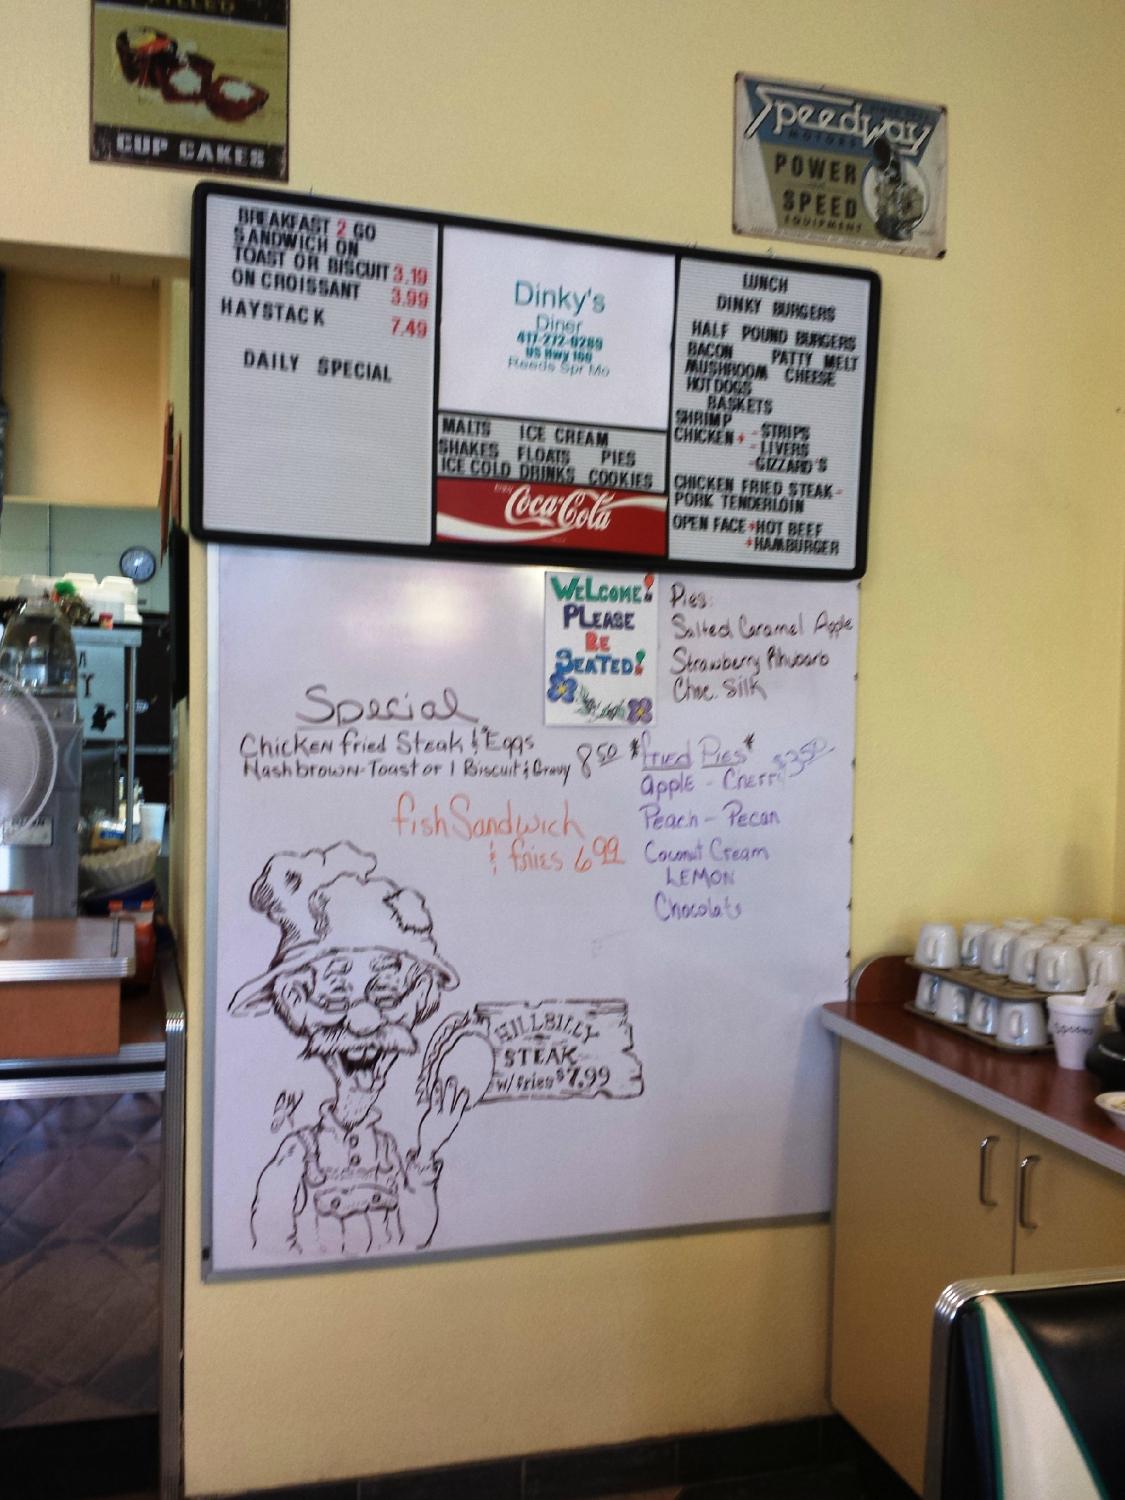 CUP CAKES
Speedway
MOTORS
POWER
AND
SPEED
EQUIPMENT
BREAKFAST 2 GO
SANDWICH ON
TOAST OR BISCUIT 3.19
ON CROISSANT 3.99
HAYSTACK 7.49
DAILY SPECIAL
Dinky's
Diner
417-272-0289
US Hwy 160
Reeds Spr Mo
MALTS ICE CREAM
SHAKES FLOATS PIES
ICE COLD DRINKS COOKIES
Enjoy
Coca-Cola
LUNCH
DINKY BURGERS
HALF POUND BURGERS
BACON PATTY MELT
MUSHROOM CHEESE
HOTDOGS
BASKETS
SHRIMP
CHICKEN + - STRIPS
- LIVERS
- GIZZARD'S
CHICKEN FRIED STEAK -
PORK TENDERLOIN
OPEN FACE + HOT BEEF
+ HAMBURGER
WELCOME!
PLEASE
BE
SEATED!
Pies:
Salted Caramel Apple
Strawberry Rhubarb
Choc. Silk
Special
Chicken fried Steak & Eggs
Hashbrown-Toast or 1 Biscuit & Gravy 8.50
fish Sandwich
& fries 6.99
*fried Pies* $3.50
Apple - Cherry
Peach - Pecan
Coconut Cream
LEMON
Chocolate
HILLBILLY
STEAK
w/ fries $7.99
Spoons